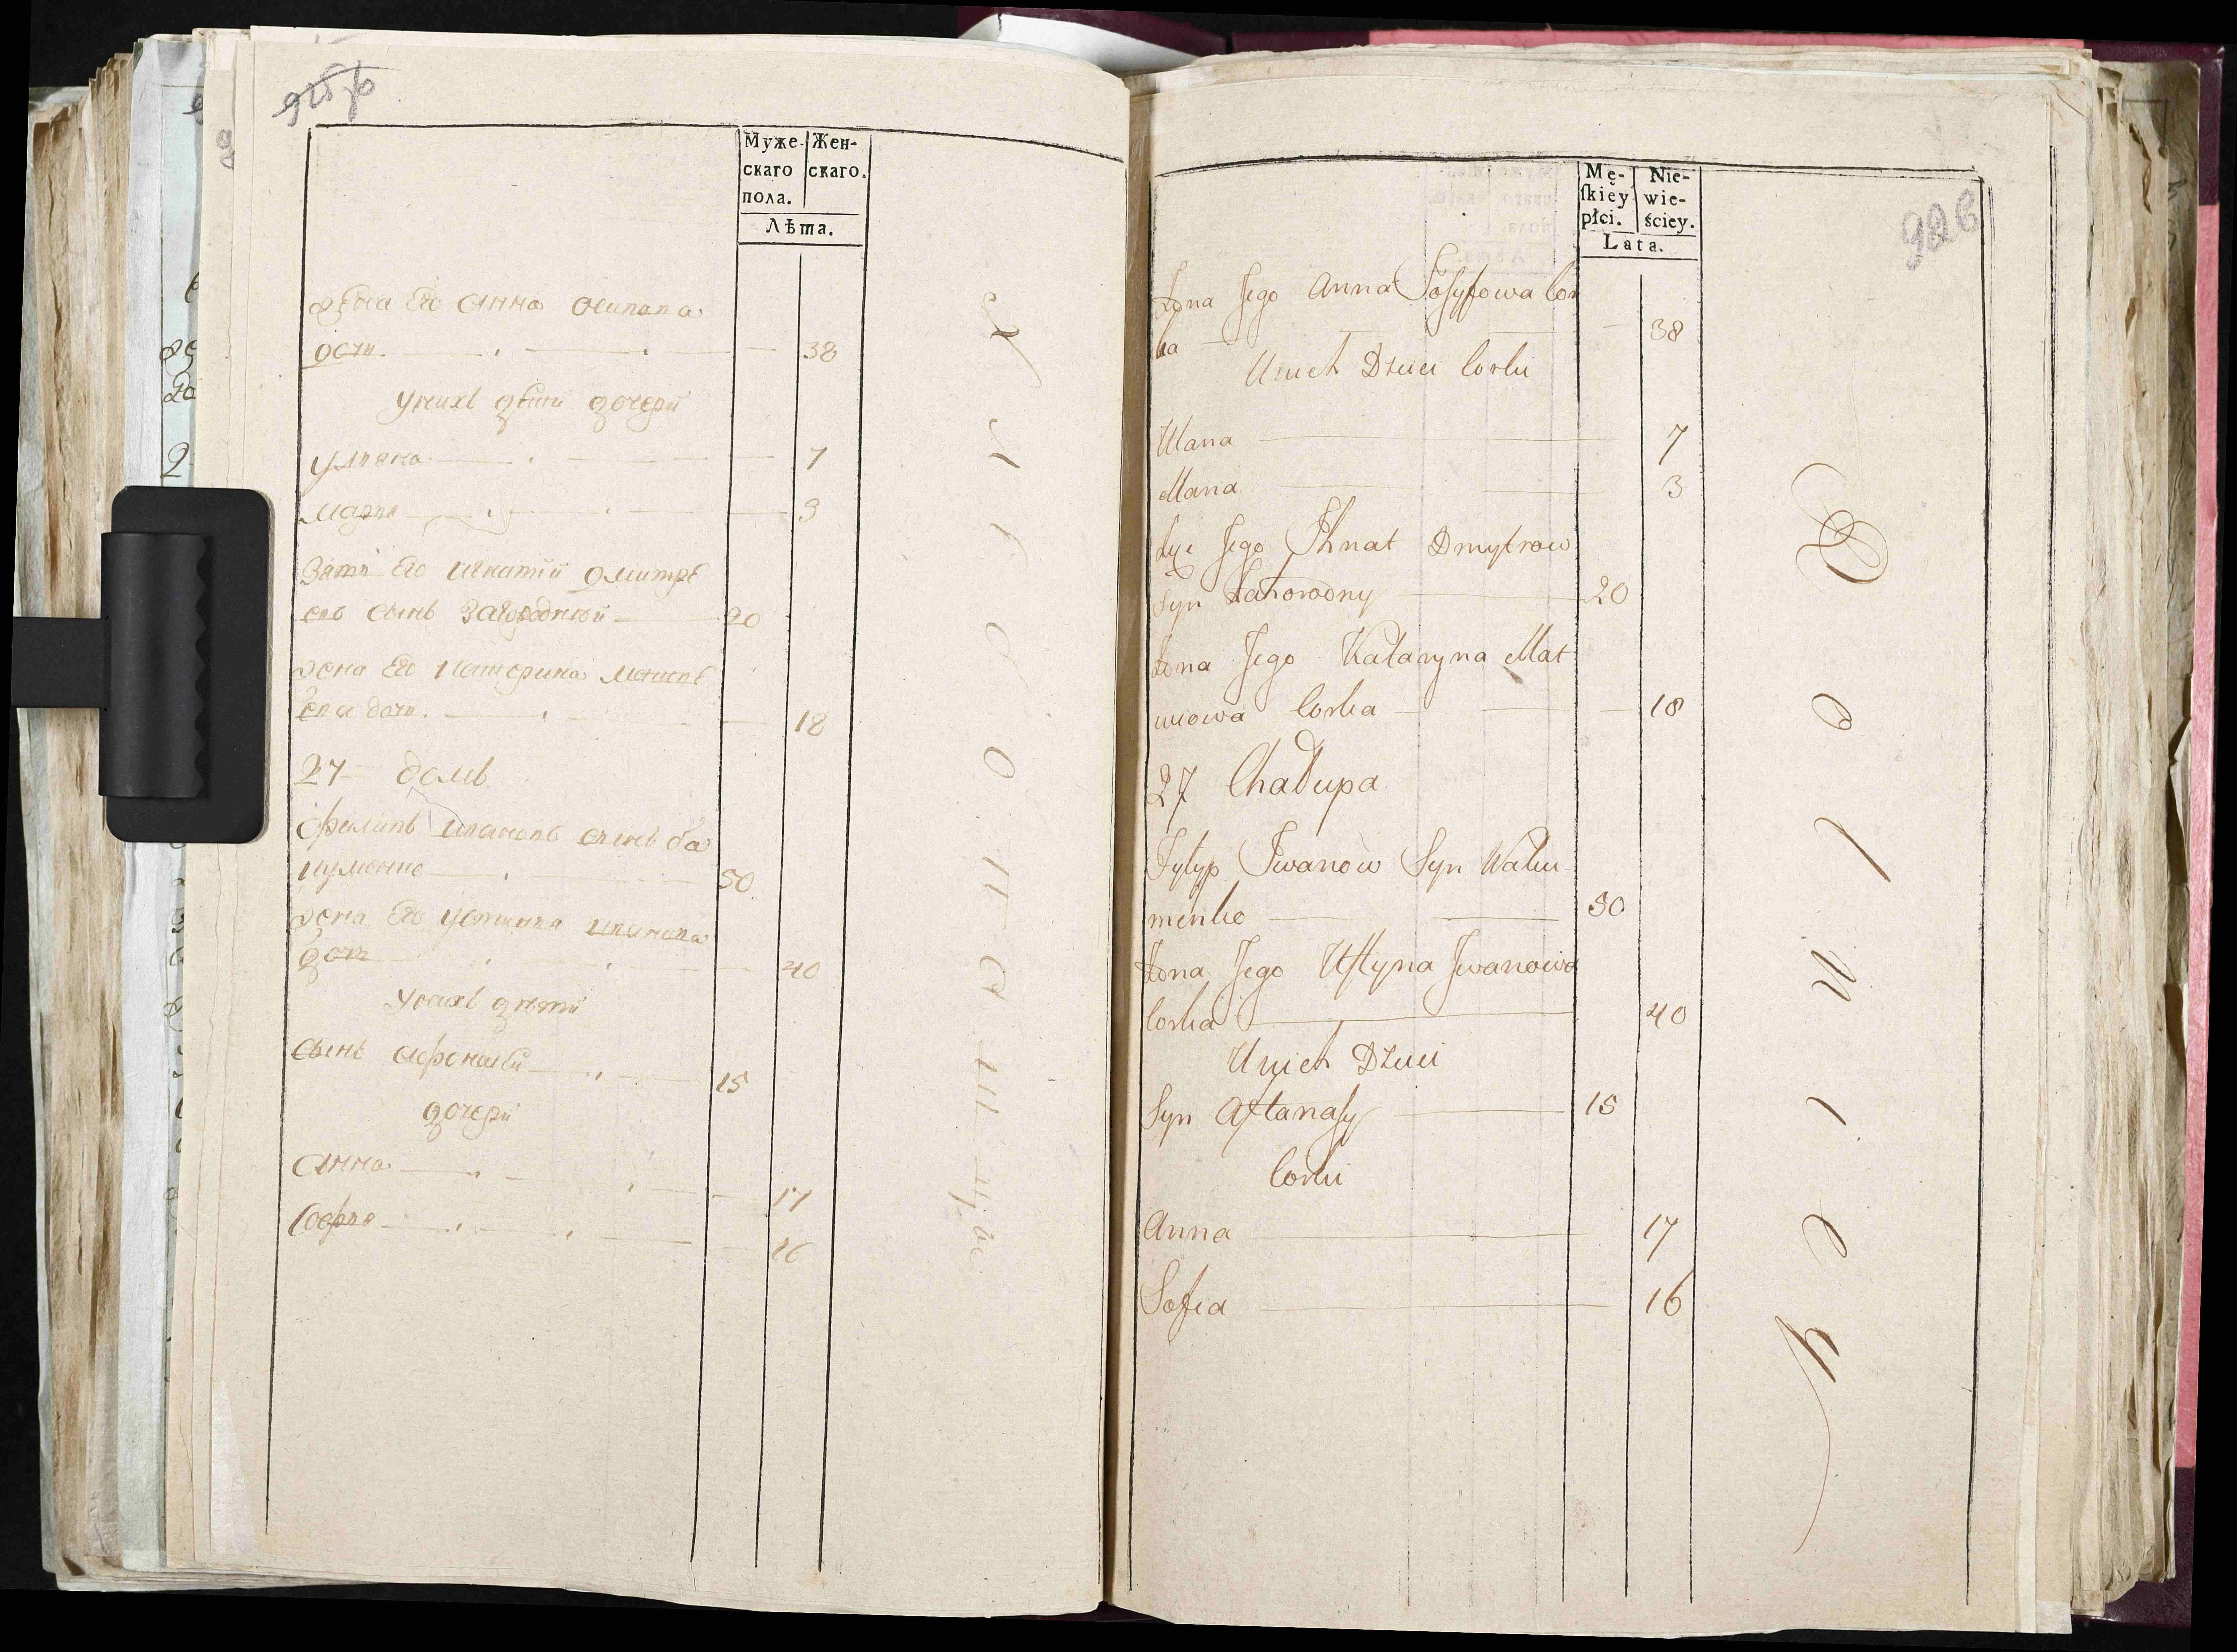 Муже- Жен-
скаго скаго.
пола.
Лѣта.
жена Его Анна Осипова
дочь 38
У нихъ дѣти дочери
Ульяна 7
Марья 3
Зять Его Игнатій Дмитре
евъ сынъ Загородный 20
жена Его Катерина Матвѣ
ева дочь 18
27 домъ
Филипъ Ивановъ сынъ Ва
куменко 50
жена Его Устинья Иванова
дочь 40
У нихъ дѣти
Сынъ Афонасѣй 15
дочери
Анна 17
Софья 16
926
Mę- Nie-
skiey wie-
płci. ściey.
Lata.
Żona Jego Anna Josyfowa Cor
ka 38
U nich Dzieci Corki
Ulana 7
Maria 3
Jego Ihnat Dmytrow
Syn Zahorodny 20
Żona Jego Kataryna Mat
wiowa Corka 18
27 Chałupa
Fylyp Iwanow Syn Waku
menko 50
Żona Jego Ustyna Iwanowa
Corka 40
U nich Dzieci
Syn Aftanasy 15
Corki
Anna 17
Sofia 16